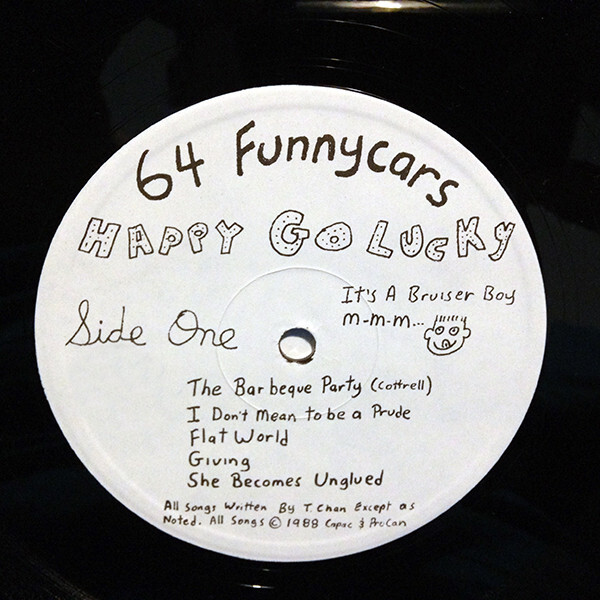 64 Funnycars
HAPPY GO LUCKY
It's A Bruiser Boy
m-m-m...
Side One
The Barbeque Party (Cottrell)
I Don't Mean to be a Prude
Flat World
Giving
She Becomes Unglued
All Songs Written By T. Chan Except as
Noted. All Songs © 1988 Capac & ProCan